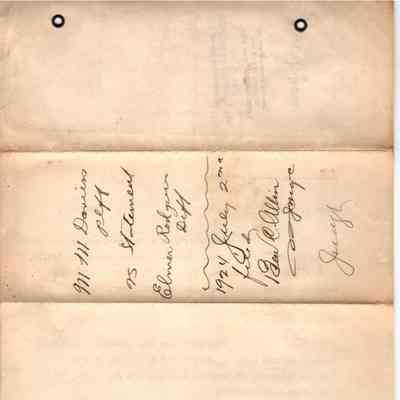 M M Daviess
Plff
vs Statement
Elmer Rodgers
Deft
1924 July 2nd
filed
Ben C Allin
Judge
Judge